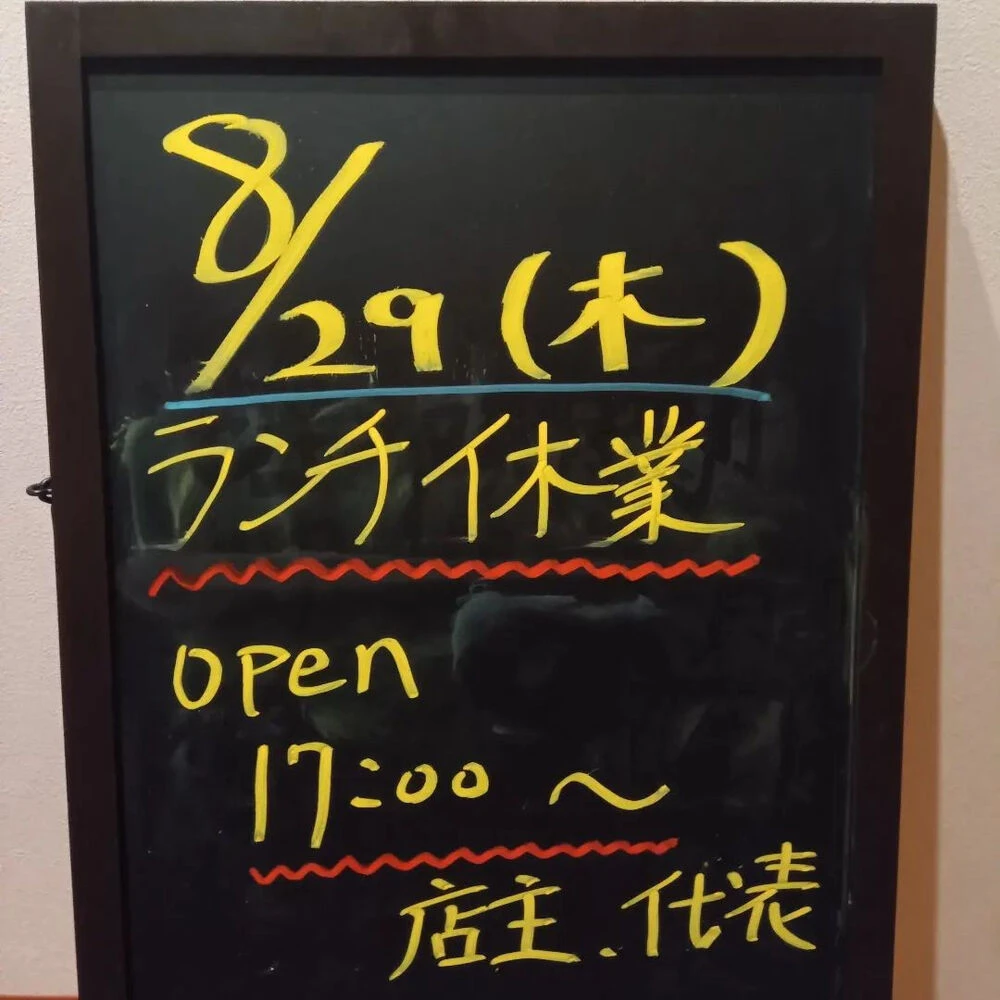 8/29(木)
ランチ休業
open
17:00～
店主、代表